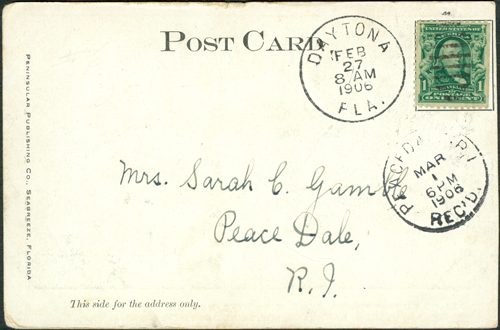 POST CARD
DAYTONA
FEB
27
8 AM
1906
FLA.
1
POSTAGE
ONE CENT
1
PEACEDALE R I
MAR
1
6 PM
1906
REC'D.
PENINSULAR PUBLISHING CO., SEABREEZE, FLORIDA
Mrs. Sarah C. Gamble
Peace Dale,
R. I.
This side for the address only.